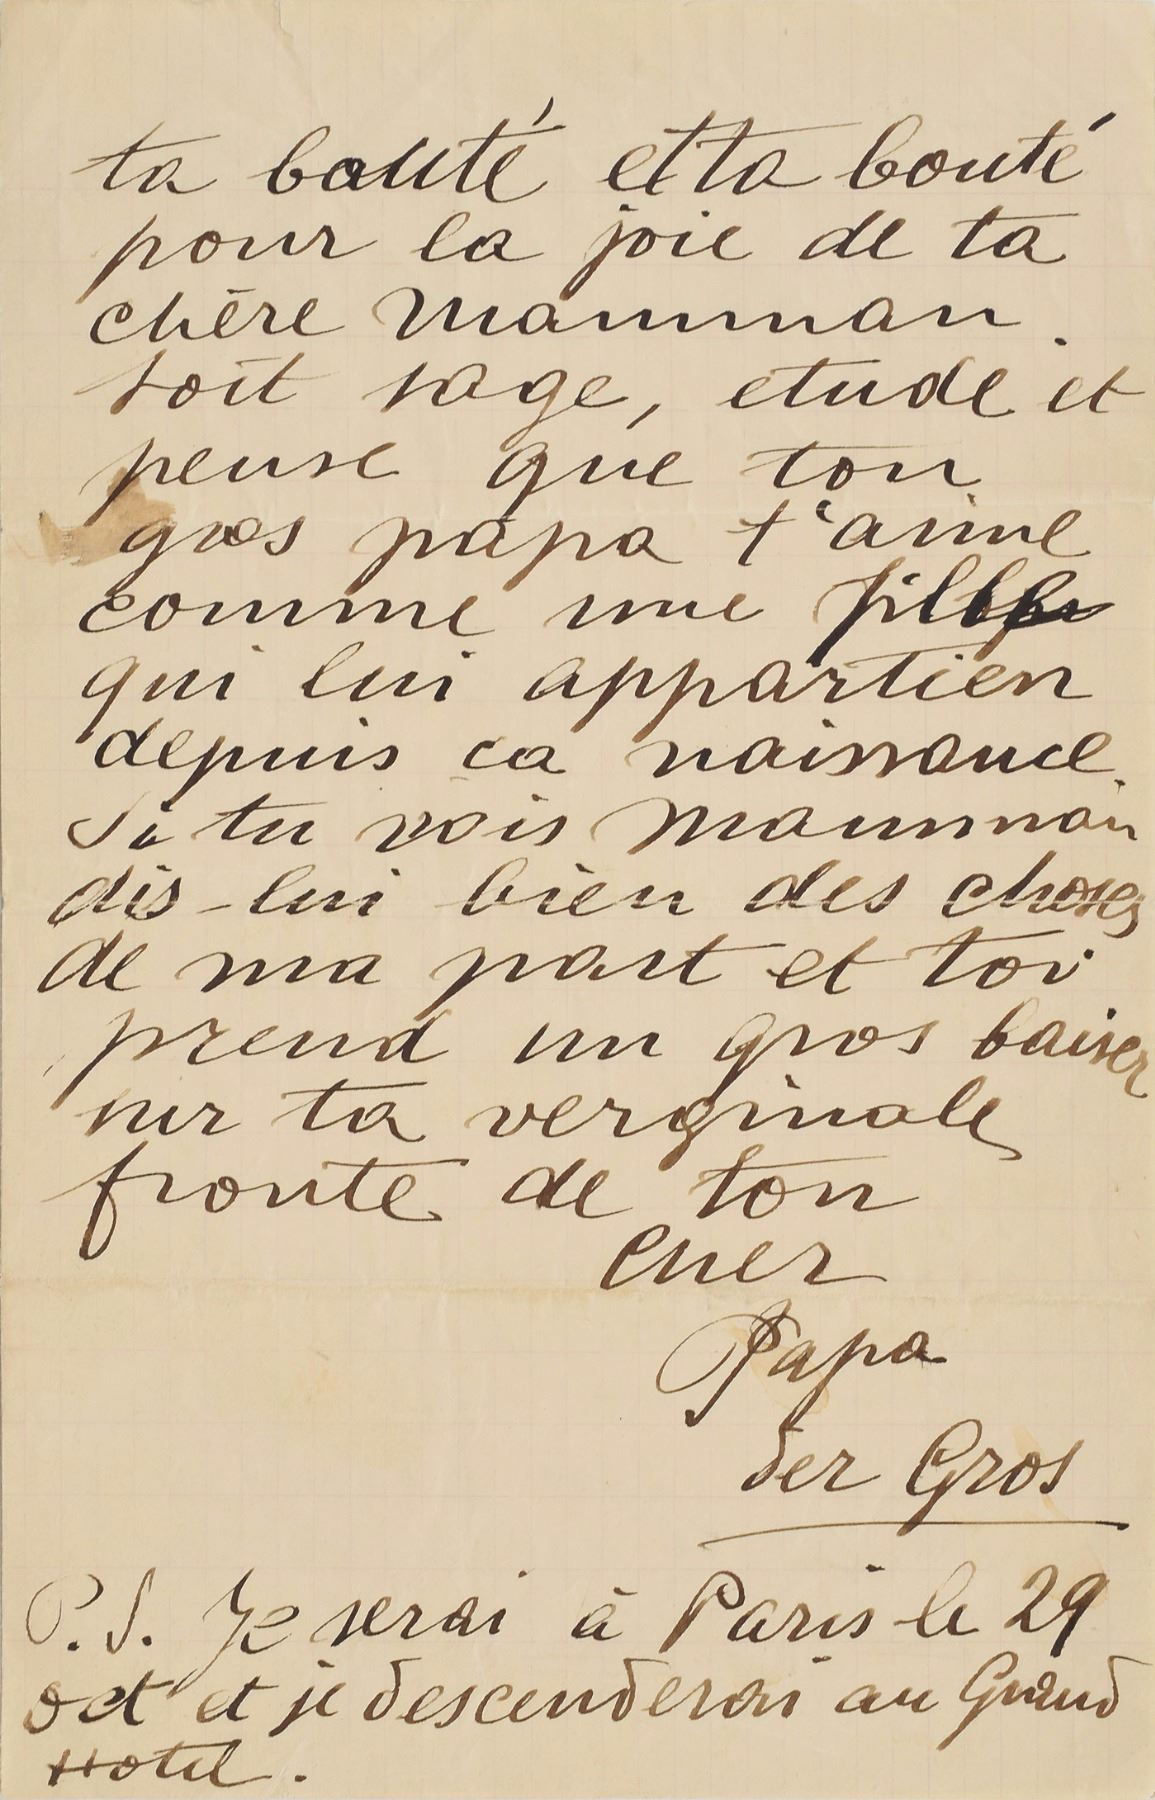 ta bauté et ta bonté
pour la joie de ta
chère Mamman.
soit sage, etude et
pense que ton
gros papa t'aime
comme une fille
qui lui appartien
depuis ca naissance.
Si tu vois Mamman
dis-lui bien des choses
de ma part et toi
prend un gros baiser
sur ta verginale
fronte de ton
Cher
Papa
der Gros
P.S. Je serai à Paris le 29
oct et je descenderai au Grand
Hotel.